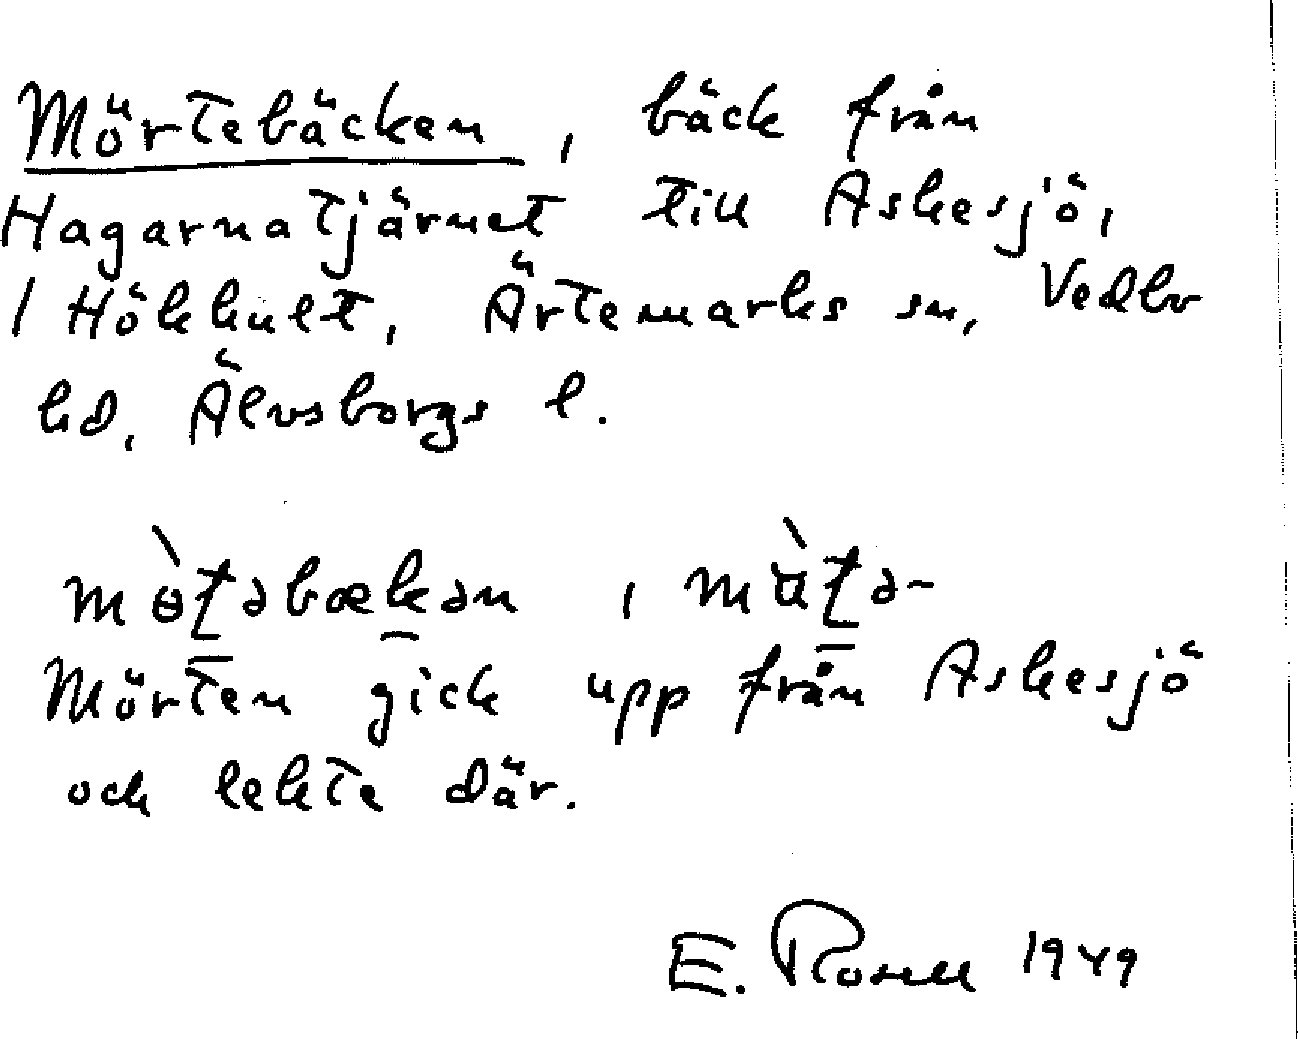 Mörtebäcken, bäck från
Hagarnatjärnet till Askesjö,
i Hökhult, Ärtemarks sn, Vedbo
hd, Älvsborgs l.
mɵ̀ʈəbækən, mɵ̀ʈə-
Mörten gick upp från Askesjö
och lekte där.
E. Rosell 1949